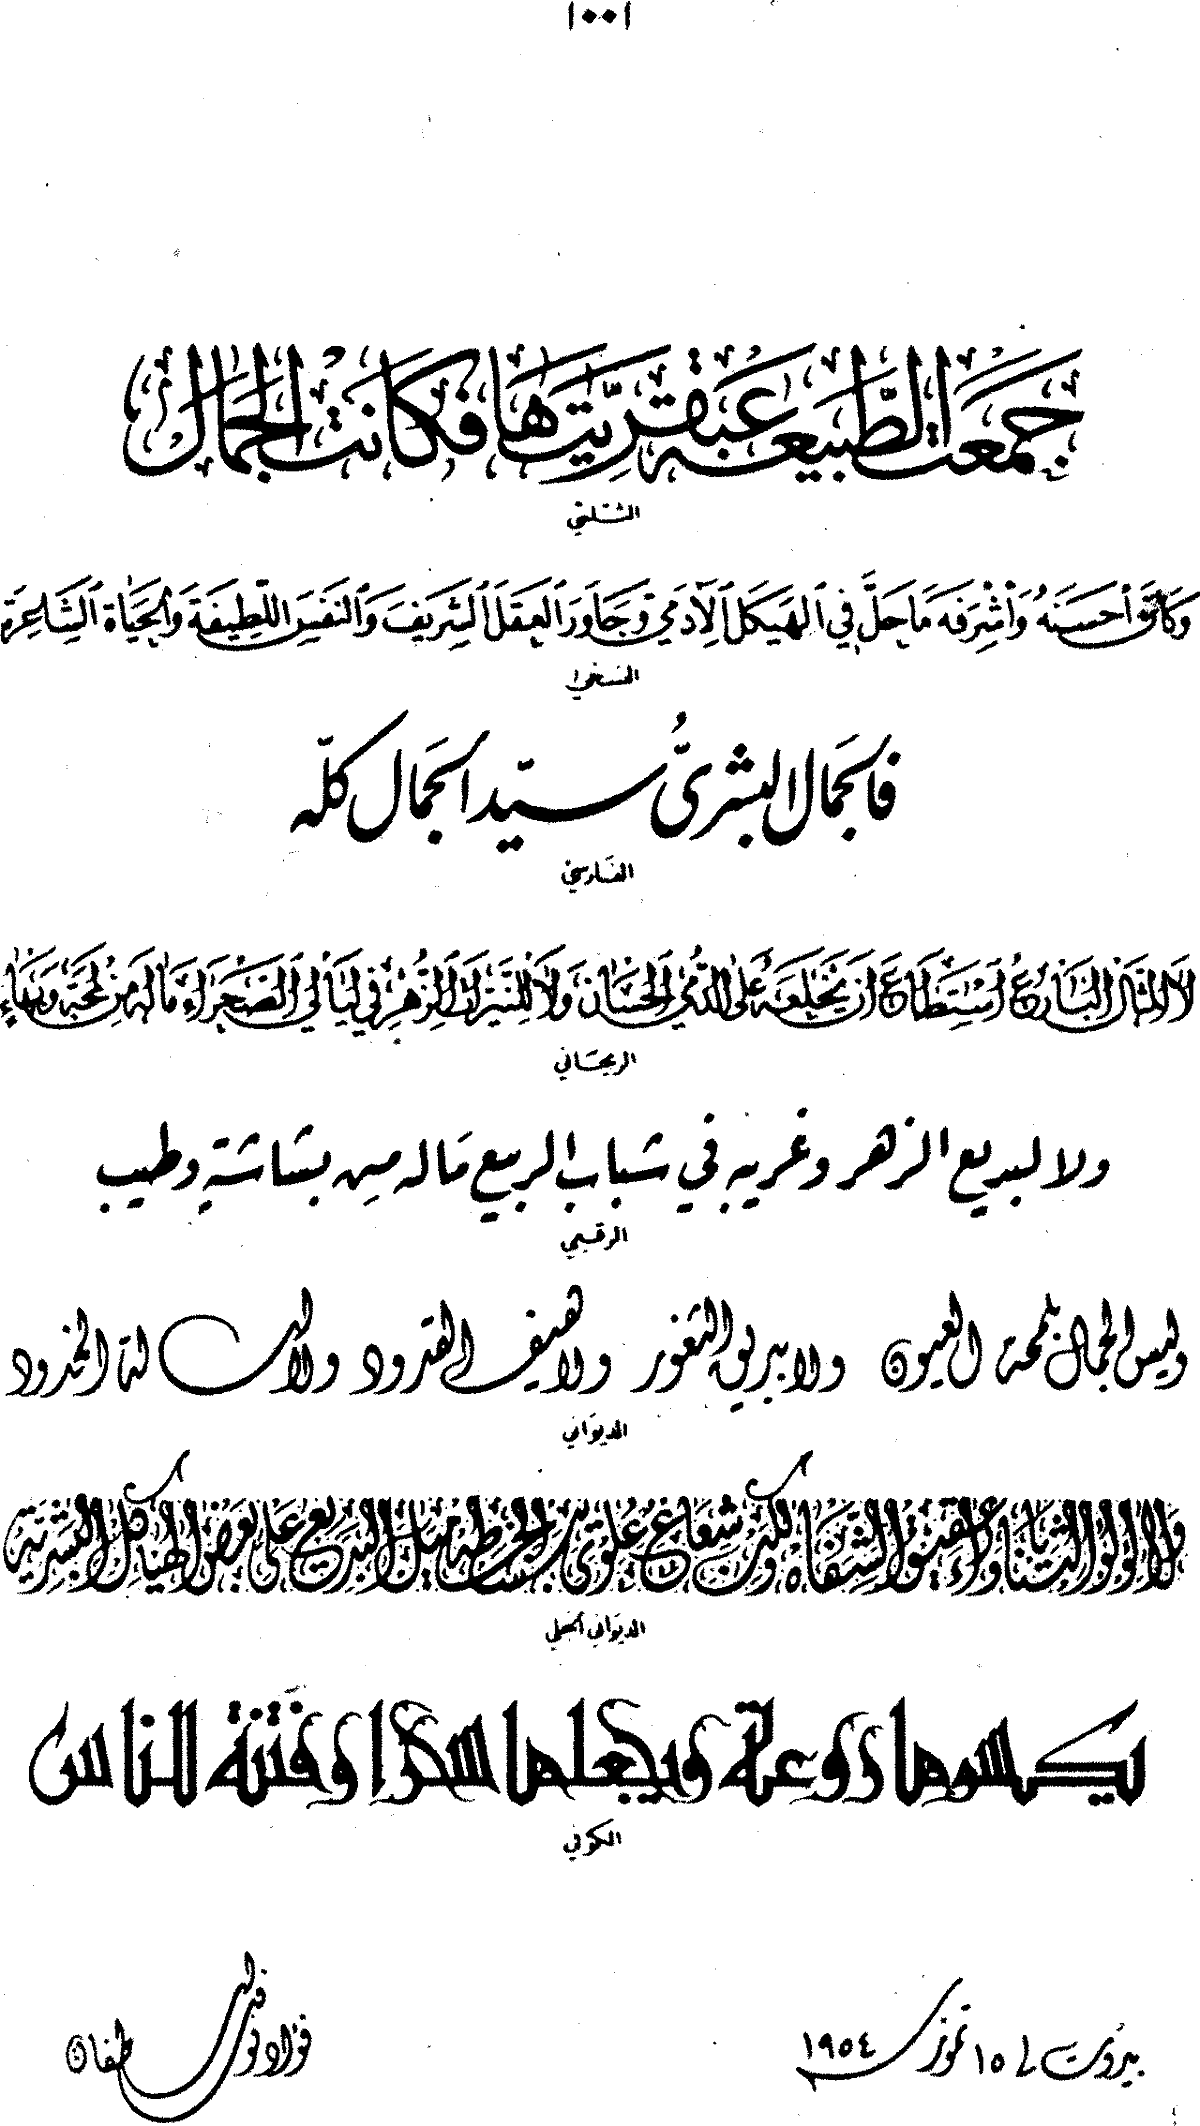 ١٠٠١
جمعت الطبيعة عبقريتها فكانت الجمال
الثلثي
وكان أحسنه وأشرفه ما حلّ في الهيكل الآدمي وجاور العقل الشريف والنفس اللطيفة والحياة الشاعرة
النسخي
فالجمال البشريُّ سيّد الجمال كلّه
الفارسي
لا المثال البارع استطاع أن يخلعه على الدمى الحسان ولا للنيرات الزهر في ليالي الصحراء ماله من لمحة وبهاء
الريحاني
ولا لبديع الزهر وغريبه في شباب الربيع ماله من بشاشة وطيب
الرقعي
وليس الجمال بلمحة العيون ولا ببريق الثغور ولا هيف القدود ولا لة الخدود
الديواني
ولا لؤلؤ الثنايا وراء عقيق الشفاه ولكن شعاع علوي يبسطه الجميل البديع على بعض الهياكل البشرية
الديواني الجلي
يكسوها روعة ويجعلها سحرا وفتنة للناس
الكوفي
بيروت في ١٥ تموز ١٩٥٤
فؤاد اسطفان